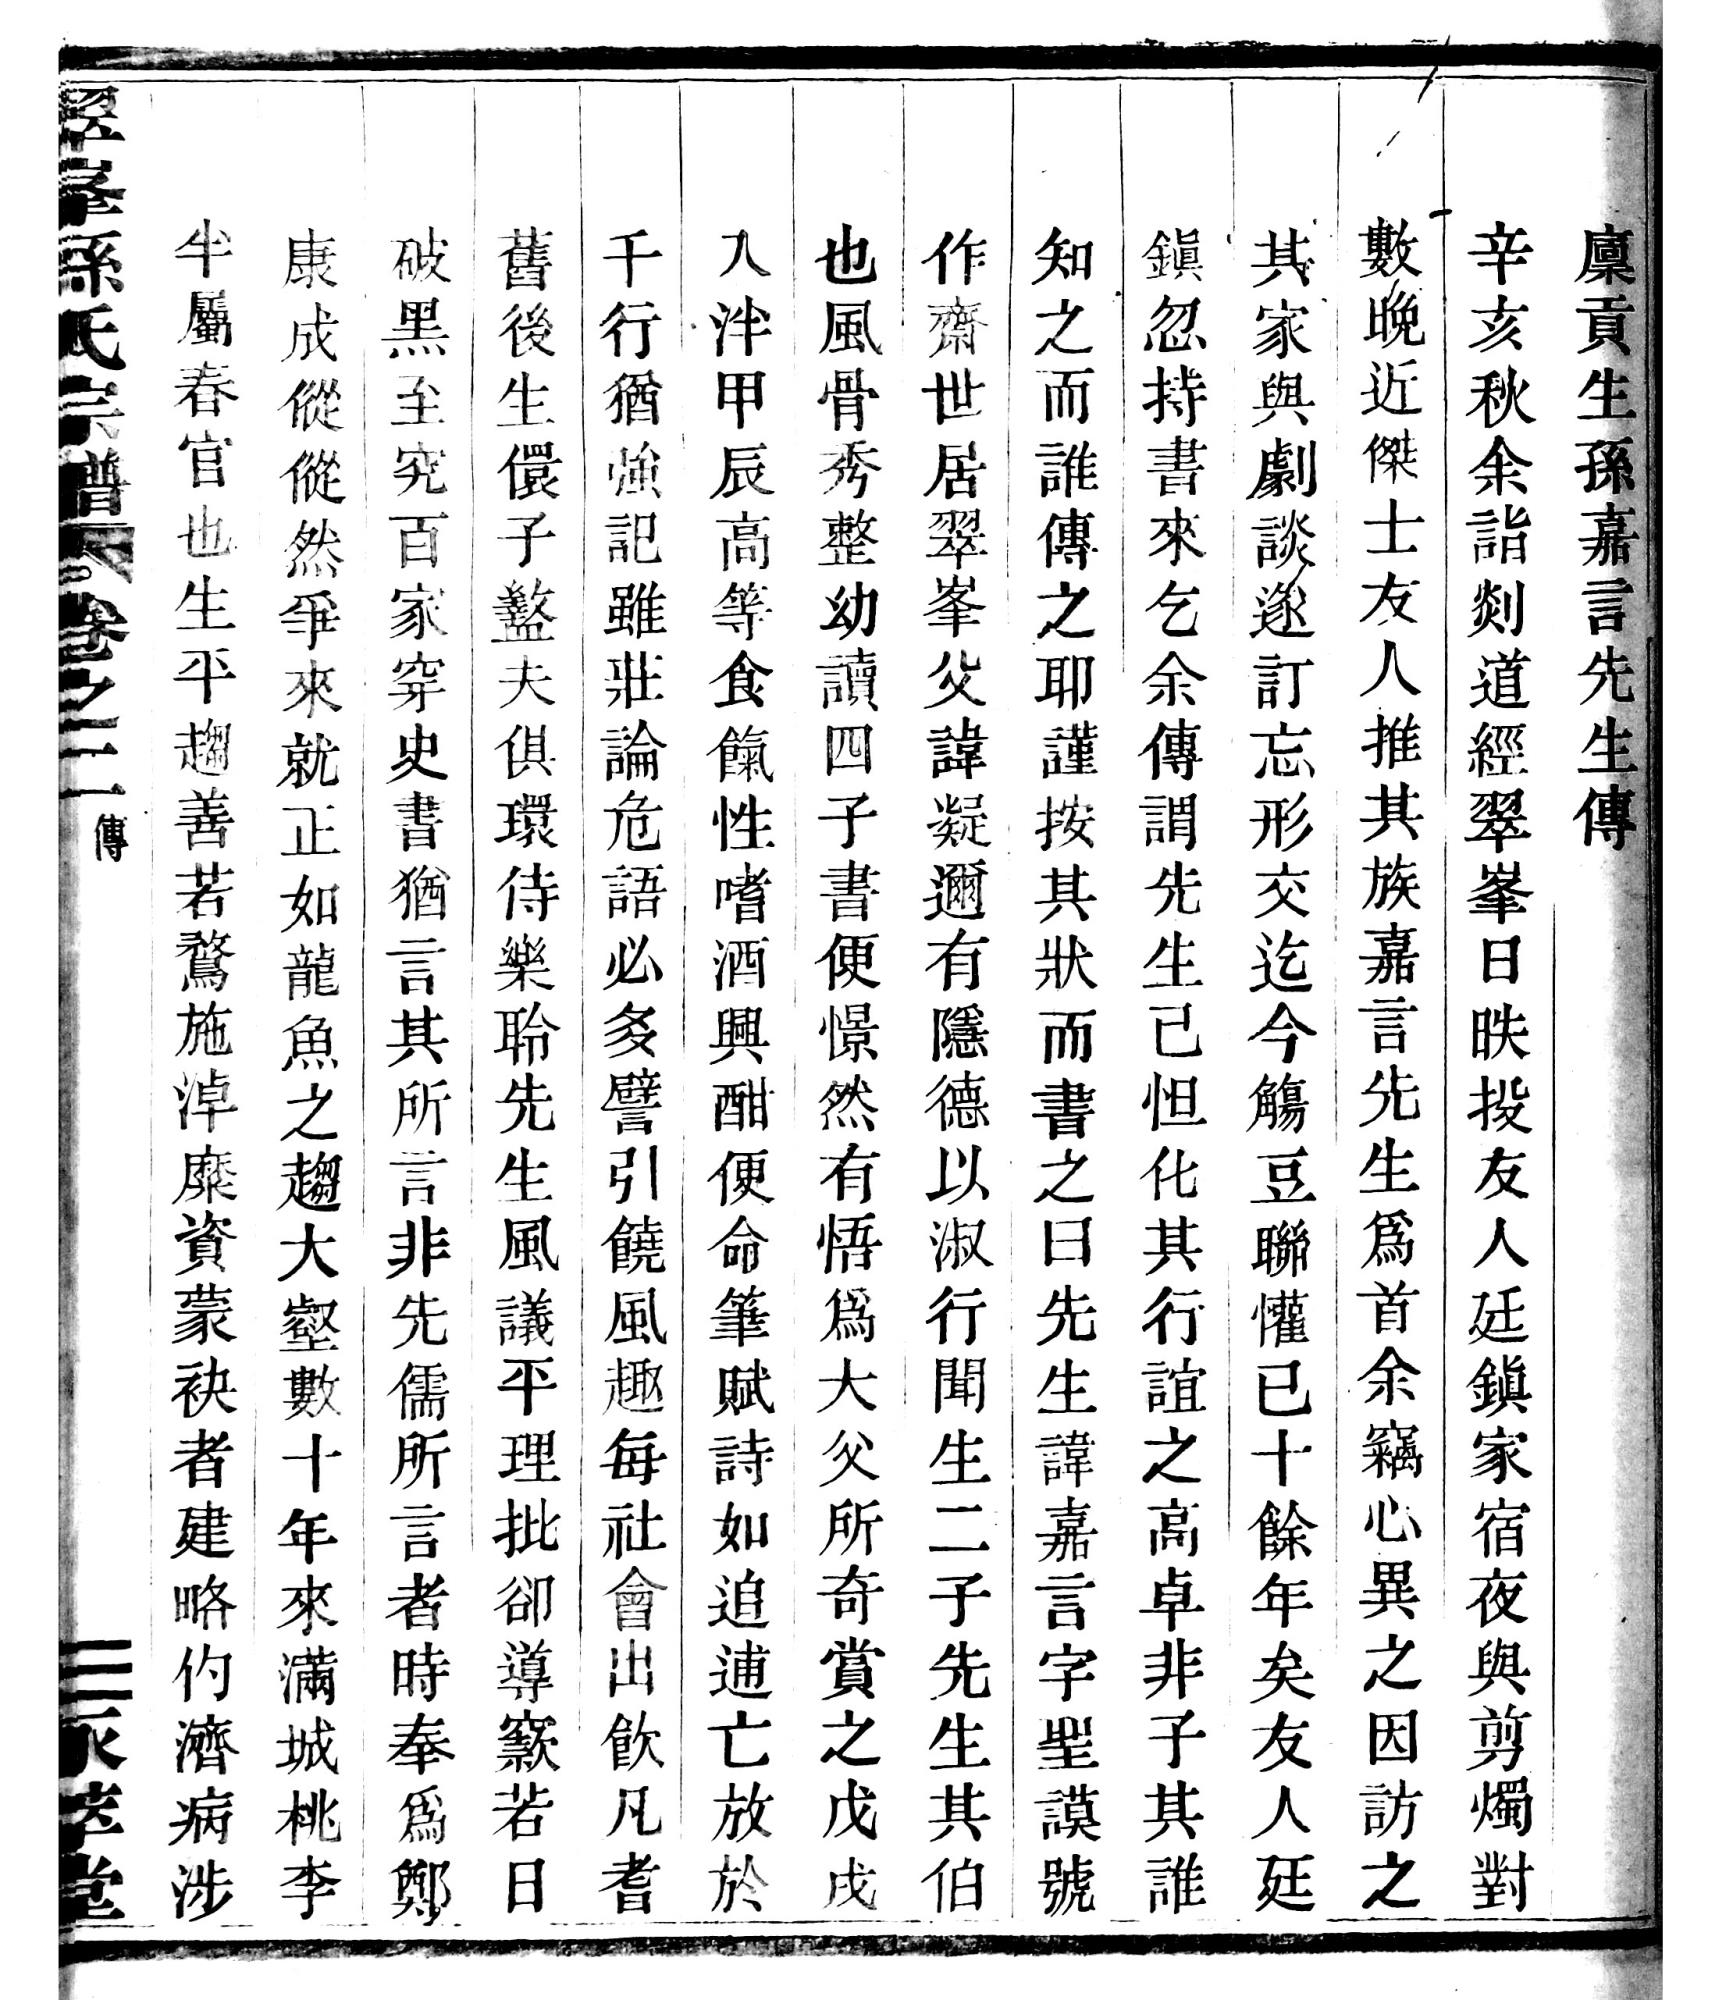 廩貢生孫嘉言先生傳
辛亥秋余詣剡道經翠峯日昳投友人廷鎭家宿夜與剪燭對
數晚近傑士友人推其族嘉言先生爲首余竊心異之因訪之
其家與劇談遂訂忘形交迄今觴豆聯懽已十餘年矣友人廷
鎭忽持書來乞余傳謂先生已怛化其行誼之高卓非子其誰
知之而誰傳之耶謹按其狀而書之曰先生諱嘉言字聖謨號
作齋世居翠峯父諱凝邇有隱德以淑行聞生二子先生其伯
也風骨秀整幼讀四子書便憬然有悟爲大父所奇賞之戊戌
入泮甲辰高等食餼性嗜酒興酣便命筆賦詩如追逋亡放於
千行猶強記雖莊論危語必多譬引饒風趣每社會出飲凡耆
舊後生儇子盭夫俱環侍樂聆先生風議平理批卻導窾若日
破黑至究百家穿史書猶言其所言非先儒所言者時奉爲鄭
康成從從然爭來就正如龍魚之趨大壑數十年來滿城桃李
半屬春官也生平趨善若鶩施淖糜資蒙袂者建略彴濟病涉
翠峯孫氏宗譜 卷之二 傳 三 永萃堂